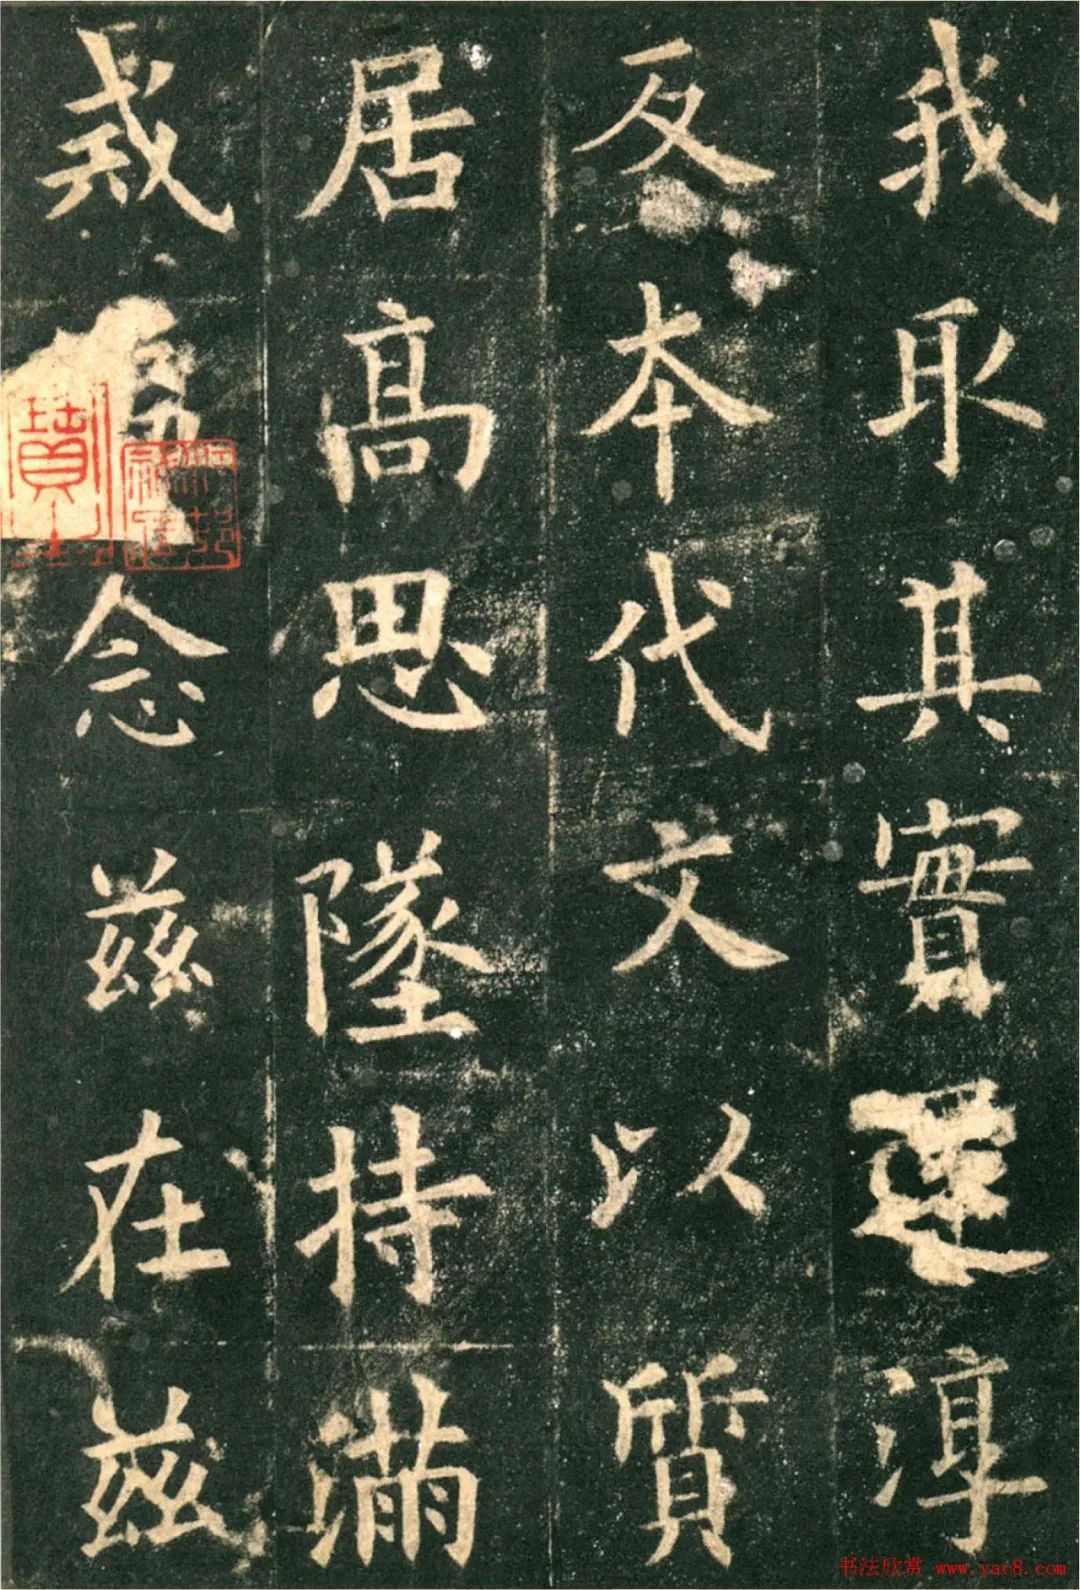 我取其實還淳
反本代文以質
居高思墜持滿
戒溢念兹在兹
书法欣赏 www.yac8.com